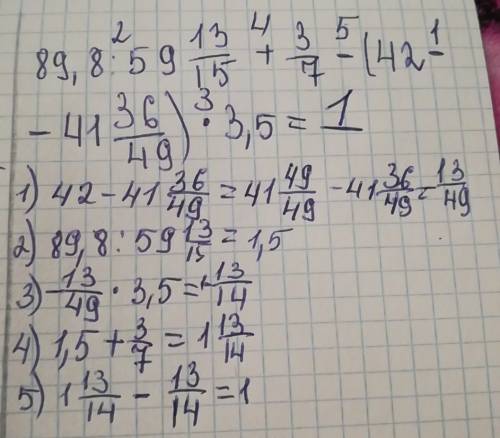 89,8 :² 59 13/15 +⁴ 3/7 -⁵ (42 -¹
- 41 36/49) ·³ 3,5 = 1
1) 42 - 41 36/49 = 41 49/49 - 41 36/49 = 13/49
2) 89,8 : 59 13/15 = 1,5
3) 13/49 · 3,5 = 13/14
4) 1,5 + 3/7 = 1 13/14
5) 1 13/14 - 13/14 = 1